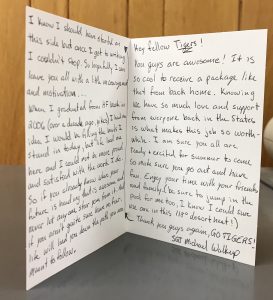 I know I should have started on
this side but once I got to writing
I couldn't stop. So hopefully I can
leave you all with a little encouragement
and motivation...
When I graduated from BF back in
2006 (over a decade ago, yikes) I had no
idea I would be filling the boots I
stand in today, but I'll tell ya
here and I could not be more proud
and satisfied with the work I do.
So if you already know what your
future is handing that is awesome and
never let anyone steer you from it. And
if you aren't quite sure have no fear,
life will lead you down the path your
meant to follow.
Hey fellow Tigers!
You guys are awesome! It is
so cool to receive a package like
that from back home. Knowing
we have so much love and support
from everyone back in the States
is what makes this job so worth-
while. I am sure you all are
ready & excited for summer to come
so make sure you go out and have
fun. Enjoy your time with your friends
and family (be sure to jump in the
pool for me too, I know I could sure
use one in this 118° desert heat!)
Thank you guys again, GO TIGERS!
SGT Michael